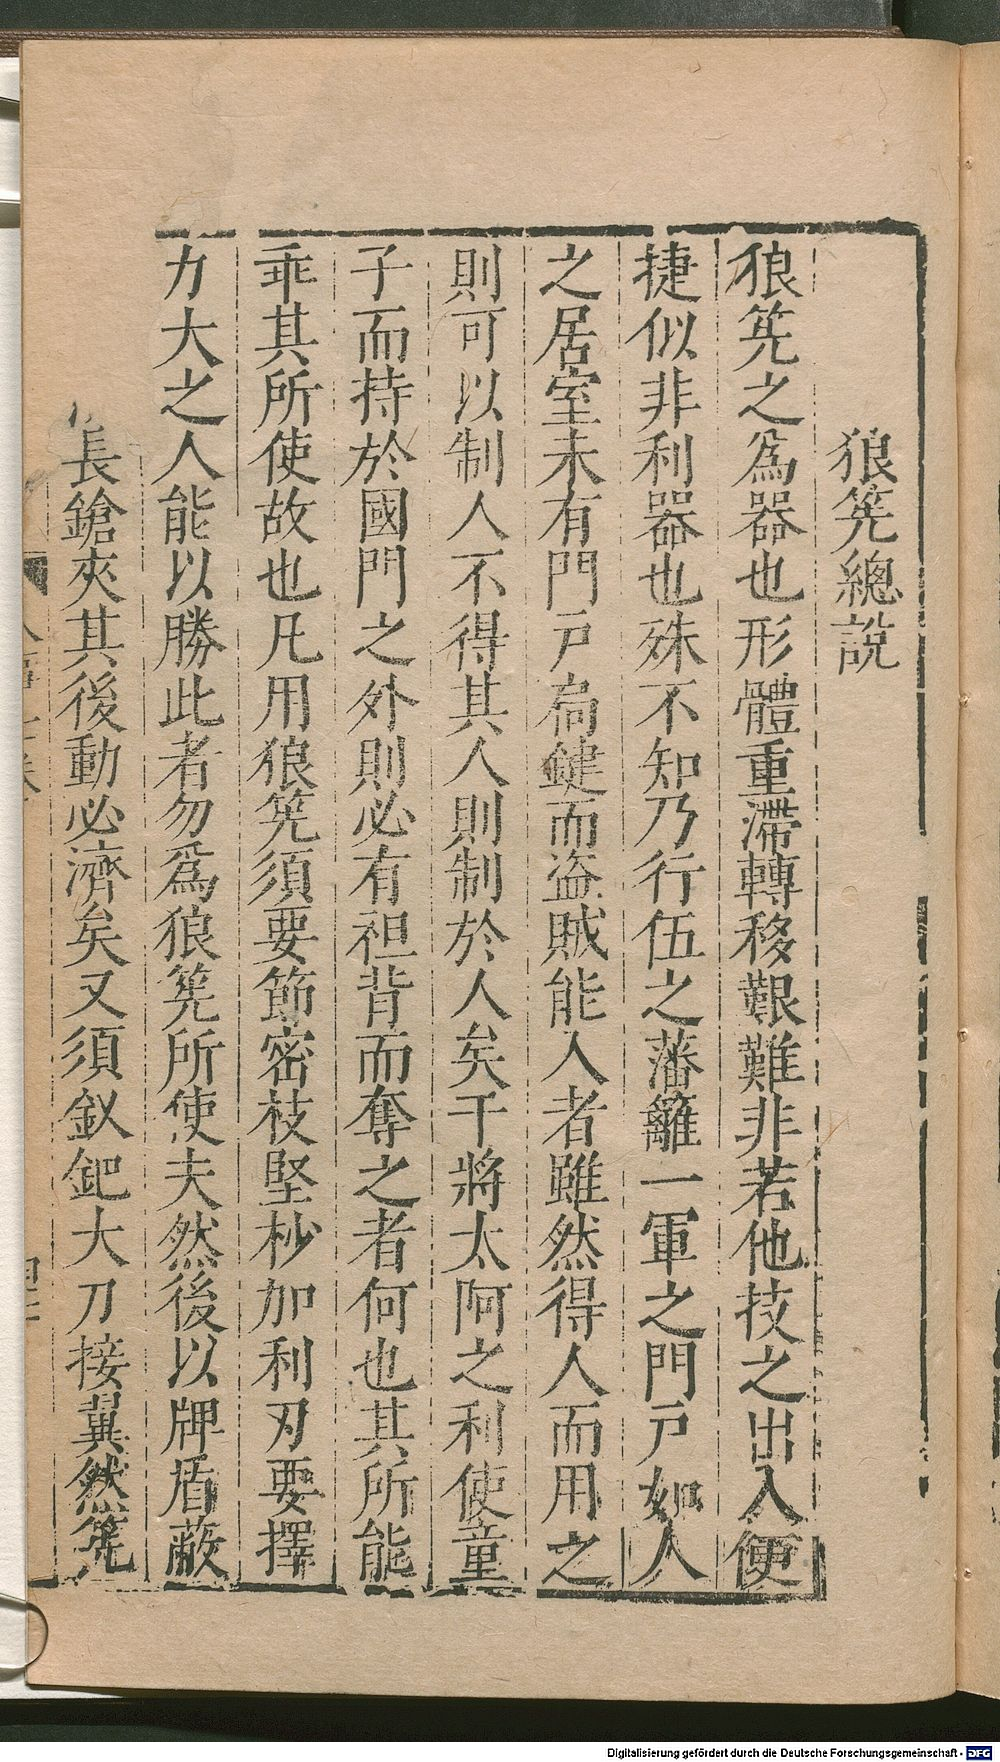 狼筅總説
狼筅之爲器也形體重滯轉移艱難非若他技之出入便
捷似非利器也殊不知乃行伍之藩籬一軍之門戸如人
之居室未有門戸扃鍵而盜賊能入者雖然得人而用之
則可以制人不得其人則制於人矣干將太阿之利使童
子而持於國門之外則必有袒背而奪之者何也其所能
乖其所使故也凡用狼筅須要節密枝堅杪加利刃要擇
力大之人能以勝此者勿爲狼筅所使夫然後以牌盾蔽
長鎗夾其後動必濟矣又須釵鈀大刀接翼然筅
Digitalisierung gefördert durch die Deutsche Forschungsgemeinschaft - DFG